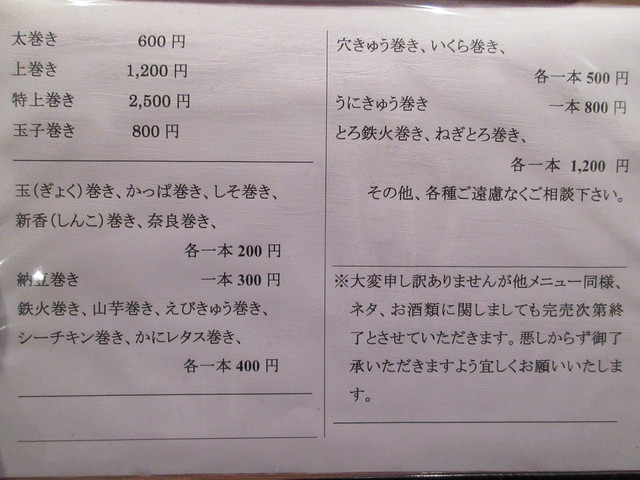 太巻き 600 円
上巻き 1,200 円
特上巻き 2,500 円
玉子巻き 800 円
玉（ぎょく）巻き、かっぱ巻き、しそ巻き、
新香（しんこ）巻き、奈良巻き、
各一本 200 円
納豆巻き 一本 300 円
鉄火巻き、山芋巻き、えびきゅう巻き、
シーチキン巻き、かにレタス巻き、
各一本 400 円
穴きゅう巻き、いくら巻き、
各一本 500 円
うにきゅう巻き 一本 800 円
とろ鉄火巻き、ねぎとろ巻き、
各一本 1,200 円
その他、各種ご遠慮なくご相談下さい。
※大変申し訳ありませんが他メニュー同様、
ネタ、お酒類に関しましても完売次第終
了とさせていただきます。悪しからず御了
承いただきますよう宜しくお願いいたしま
す。